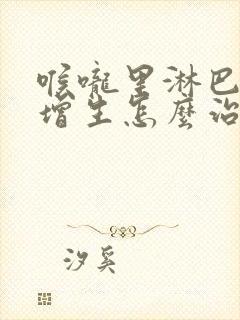 喉嚨里淋巴
增生怎麼治
汐奚